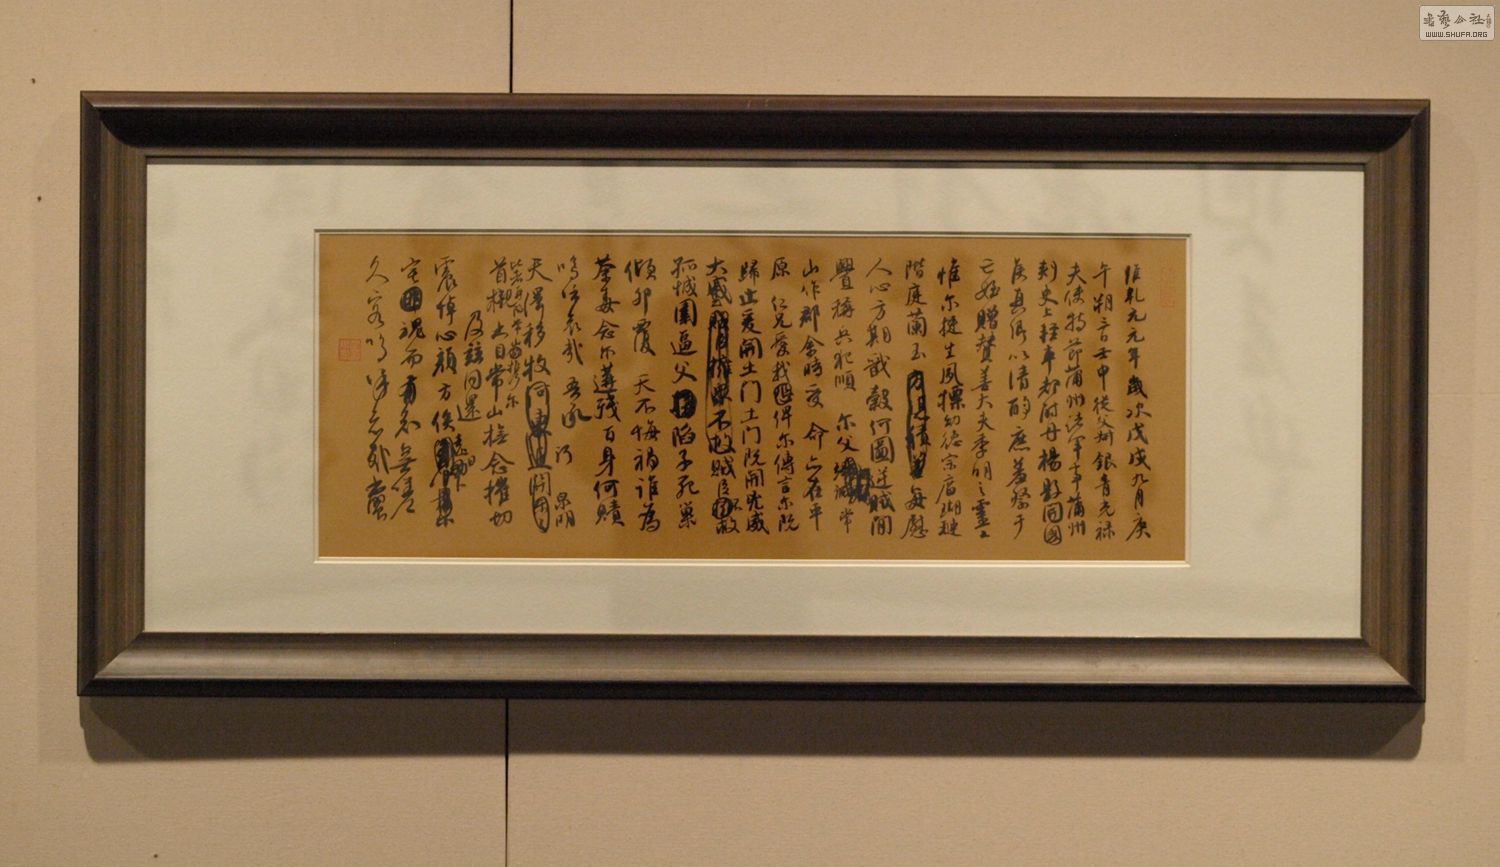 維乾元元年歲次戊戌九月庚
午朔三日壬申從父銀青光祿
夫使持節蒲州諸軍事蒲州
刺史上輕車都尉丹楊縣開國
侯真卿以清酌庶羞祭于
亡姪贈贊善大夫季明之靈
惟爾挺生夙標幼德宗廟瑚璉
階庭蘭玉每慰
人心方期戩穀何圖逆賊閒
釁稱兵犯順 爾父竭誠常
山作郡余時受命亦在平
原 仁兄愛我俾爾傳言爾既
歸止爰開土門土門既開兇威
大蹙賊臣不救
孤城圍逼父陷子死巢
傾卵覆 天不悔禍誰為
荼毒念爾遘殘百身何贖
嗚呼哀哉 吾承 泉明
天澤移牧河東近
首櫬亦自常山撫念摧切
及茲同還
震悼心顏方俟
宅魂而有知無嗟
久客嗚呼哀哉尚饗
書藝公社
WWW.SHUFA.ORG